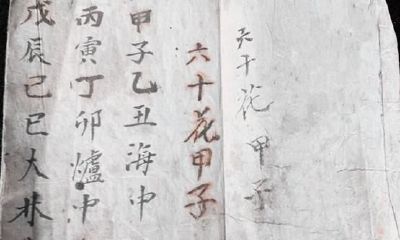 天干花甲子
六十花甲子
甲子乙丑海中
丙寅丁卯爐中
戊辰己巳大林